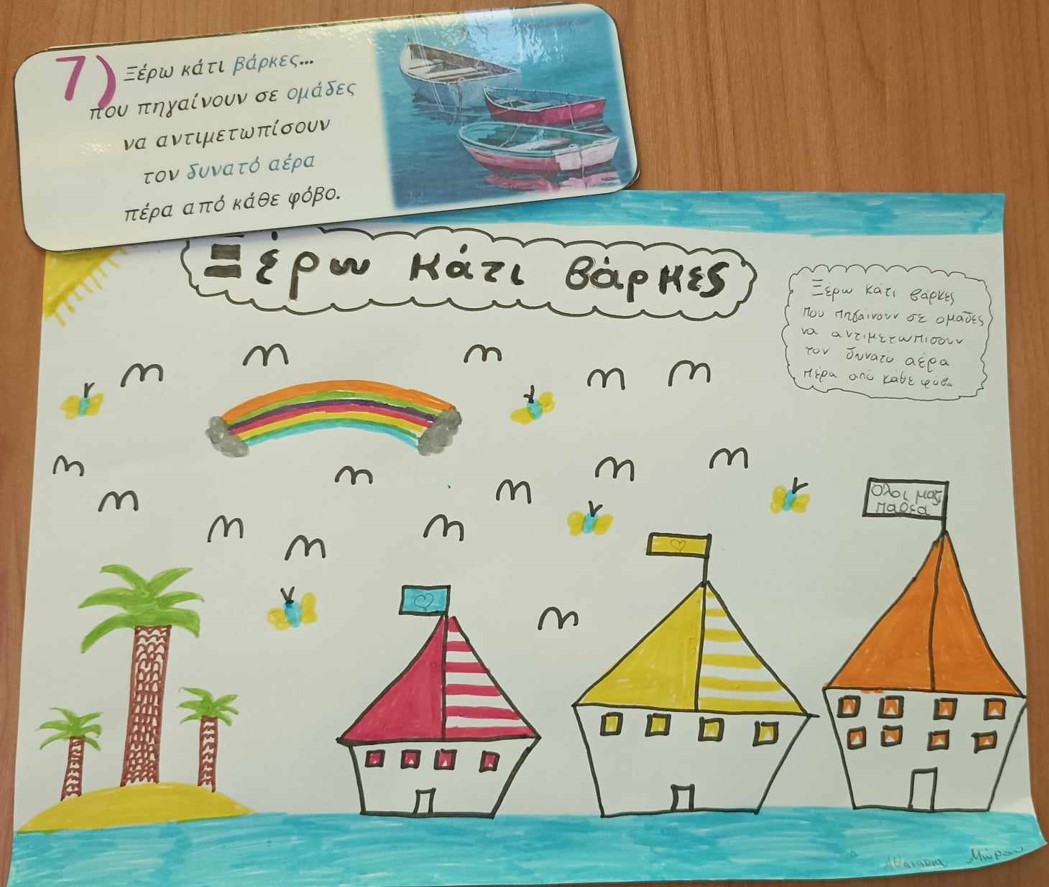 7)
Ξέρω κάτι βάρκες...
που πηγαίνουν σε ομάδες
να αντιμετωπίσουν
τον δυνατό αέρα
πέρα από κάθε φόβο.
Ξέρω κάτι βάρκες
Ξέρω κάτι βάρκες
που πηγαινουν σε ομάδες
να αντιμετωπισουν
τον δυνατο αέρα
περα από καθε φόβο
Όλοι μαζί
παρέα
Μώρου